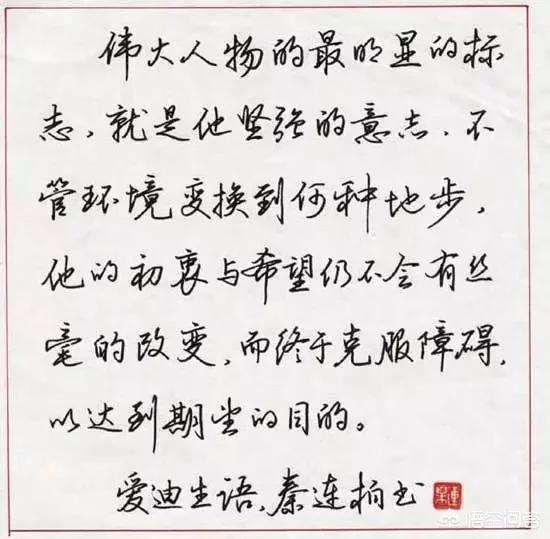 伟大人物的最明显的标
志，就是他坚强的意志，不
管环境变换到何种地步，
他的初衷与希望仍不会有丝
毫的改变，而终于克服障碍，
以达到期望的目的。
爱迪生语，秦连柏书
悟空问答